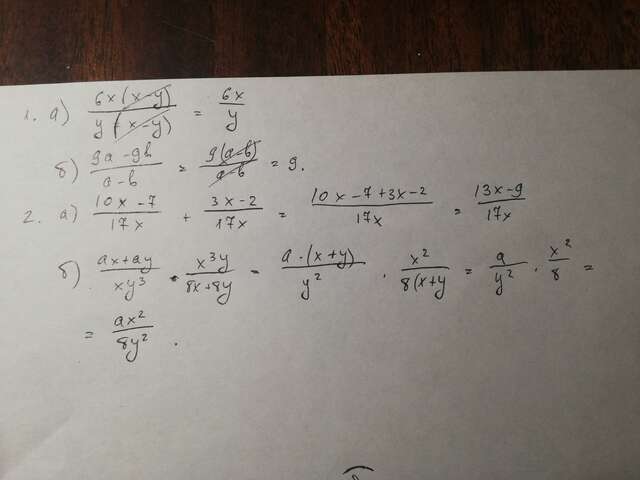 1. а) 6x(x-y) / y(x-y) = 6x / y
б) 9a-9b / a-b = 9(a-b) / a-b = 9.
2. а) 10x-7 / 17x + 3x-2 / 17x = 10x-7+3x-2 / 17x = 13x-9 / 17x
б) ax+ay / xy³ · x³y / 8x+8y = a·(x+y) / y² · x² / 8(x+y = a / y² · x² / 8 =
= ax² / 8y² .